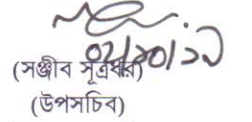 ০২/১০/১৯
(সঞ্জীব সূত্রধর)
(উপসচিব)